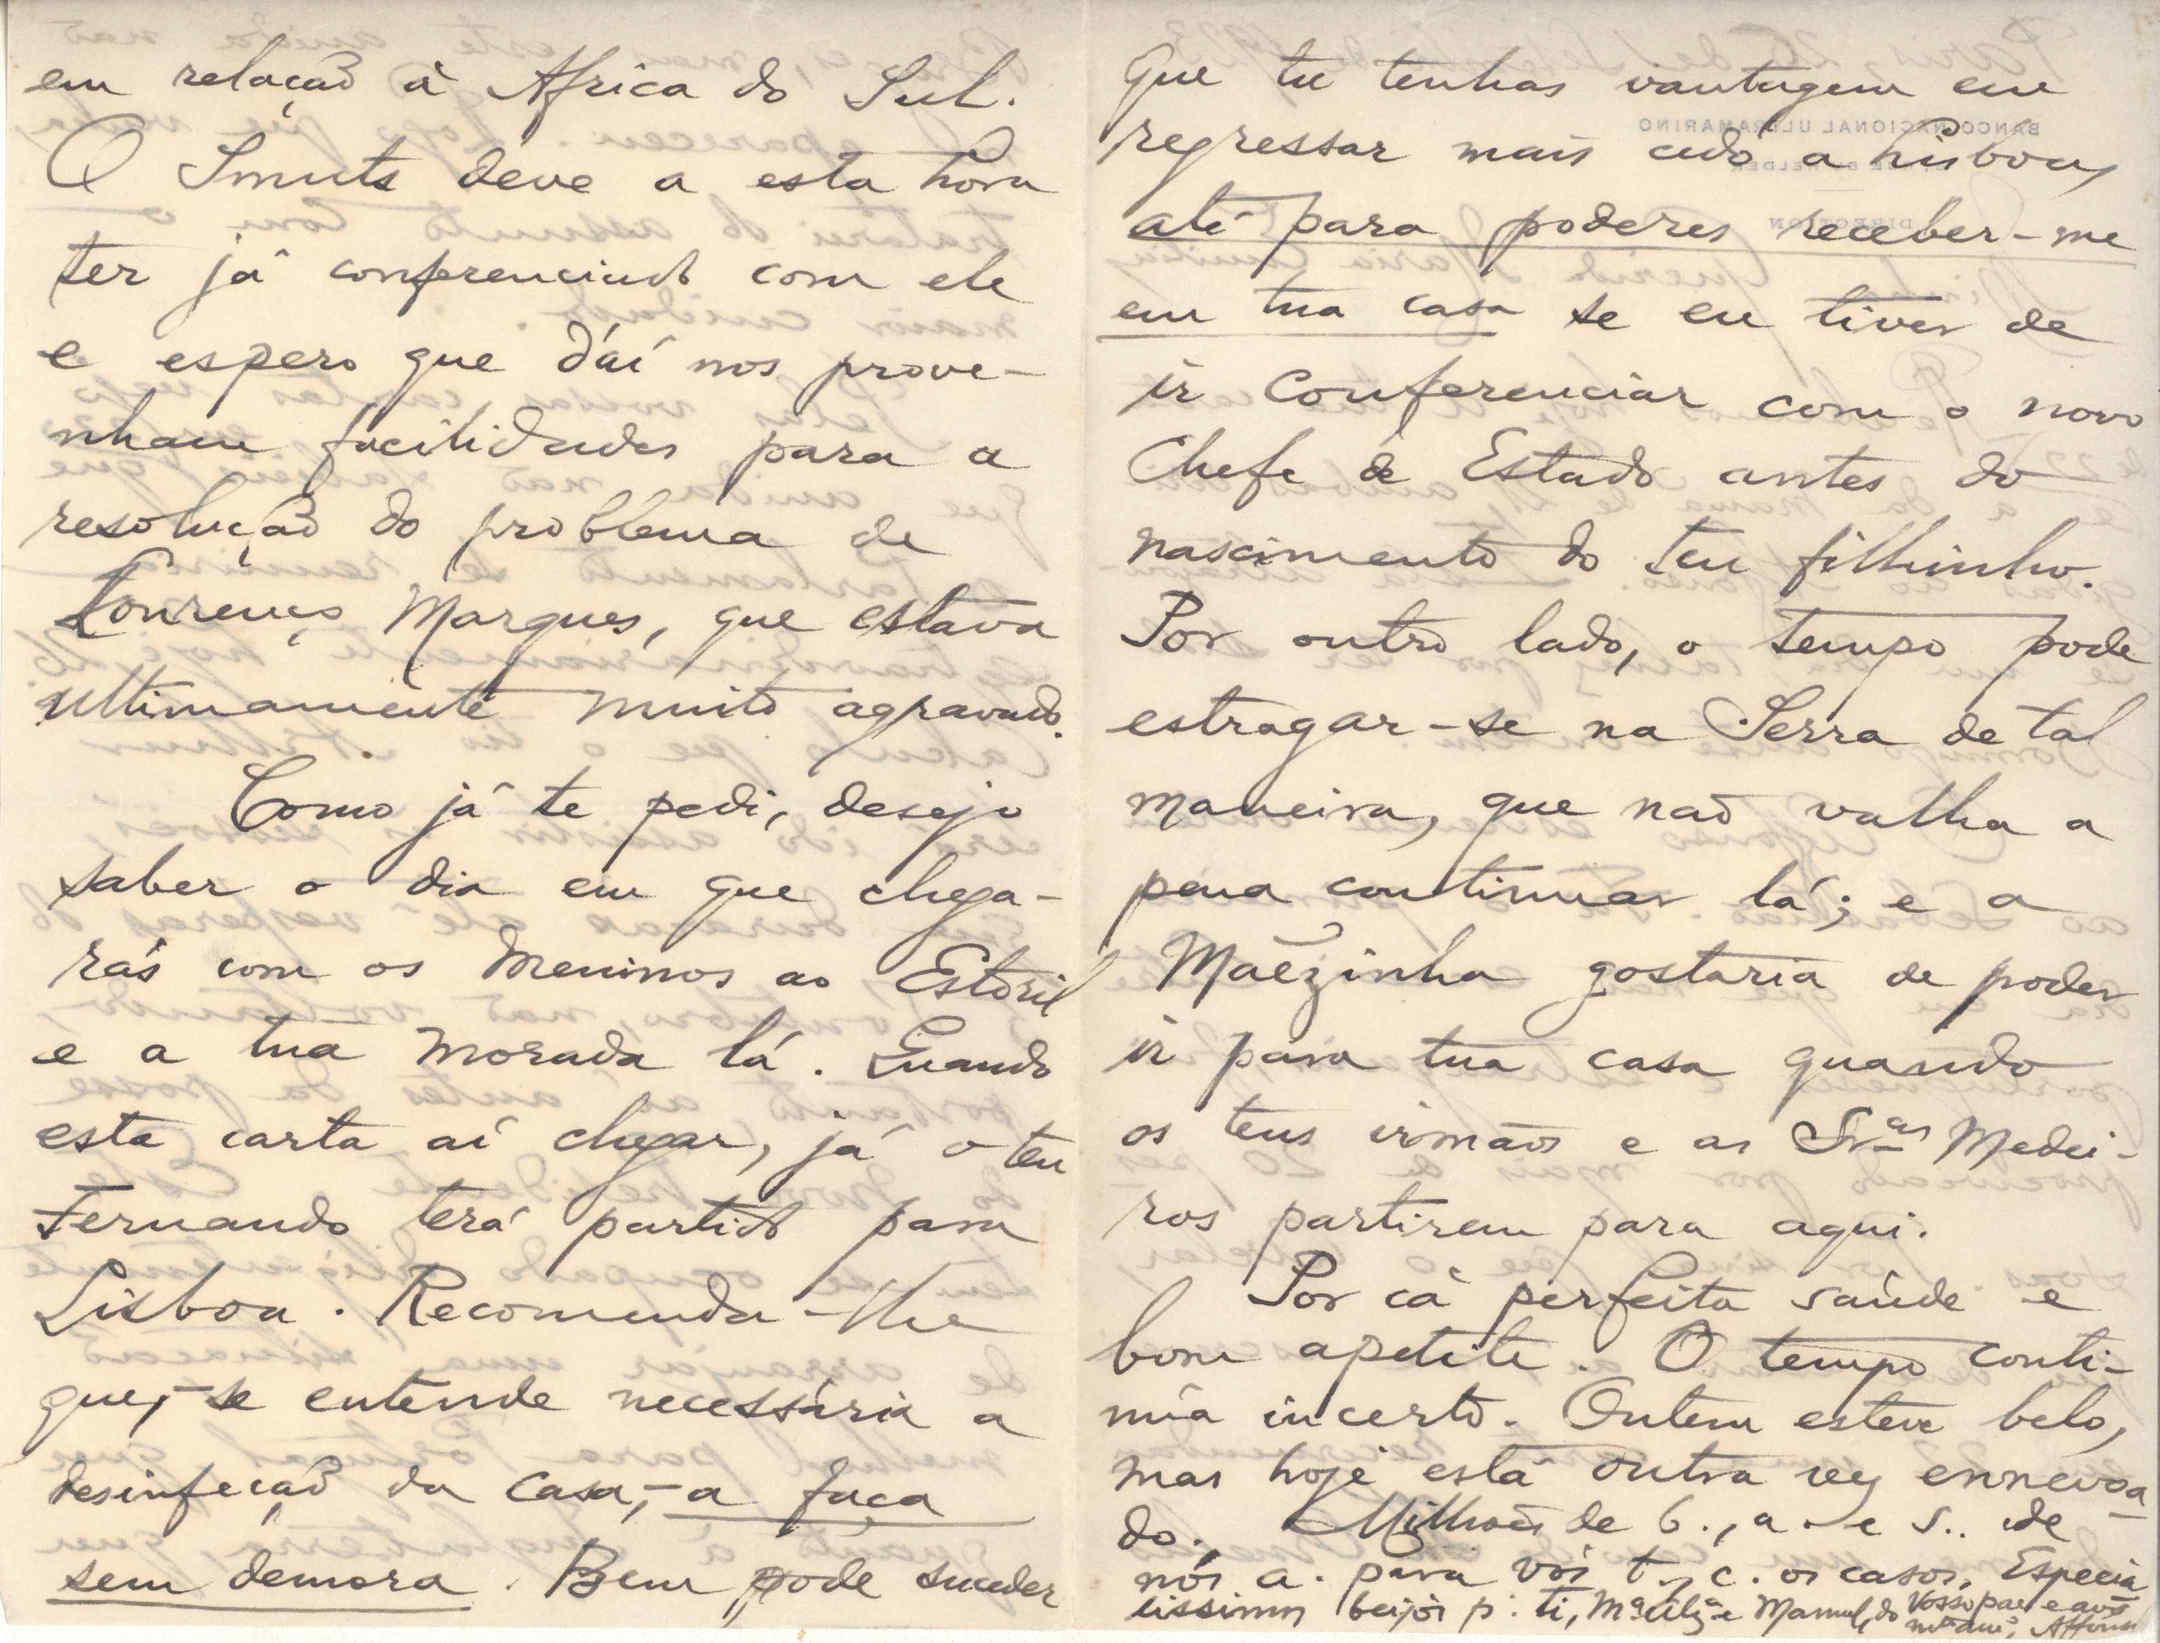 em relação à Africa do Sul.
O Smuts deve a esta hora
ter já conferenciado com ele
e espero que d'aí nos prove-
nham facilidades para a
resolução do problema de
Lourenço Marques, que estava
ultimamente muito agravado.
Como já te pedi, desejo
saber o dia em que chega-
rás com os Meninos ao Estoril
e a tua morada lá. Quando
esta carta aí chegar, já o teu
Fernando terá partido para
Lisboa. Recomenda-lhe
que,-se entende necessária a
desinfecção da casa,-a faça
sem demora. Bem pode suceder
que tu tenhas vantagem em
regressar mais cedo a Lisboa,
até para poderes receber-me
em tua casa se eu tiver de
ir conferenciar com o novo
Chefe de Estado antes do
nascimento do teu filhinho.
Por outro lado, o tempo pode
estragar-se na Serra de tal
maneira, que não valha a
pena continuar lá; e a
Mãezinha gostaria de poder
ir para tua casa quando
os teus irmãos e as Sras Medei-
ros partirem para aqui.
Por cá perfeita saúde e
bom apetite. O tempo conti-
núa incerto. Ontem esteve belo,
mas hoje está outra vez ennevoa-
do. Milhões de b., a. e s.. de
nós a. para vós t., c. os casos. Especia
lissimos beijos p. ti, Ma e Manuel, do Vosso pae e avô
mto am.o, Affonso